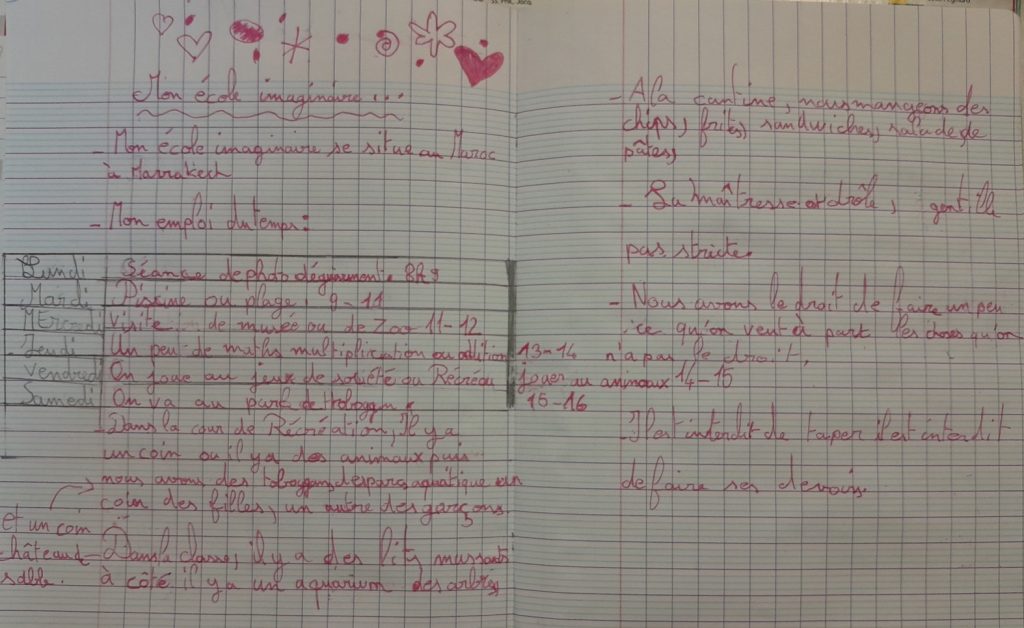 Mon école imaginaire...
- Mon école imaginaire se situe au Maroc
à Marrakech
- Mon emploi du temps:
Lundi Séance de photo déguisement. 8h9
Mardi Piscine ou plage, 9-11
MErcredi Visite : de musée ou de Zoo 11-12
Jeudi Un peut de maths multiplication ou addition 13-14
Vendredi On joue au jeux de société ou Récréau jouer au animaux 14-15
Samedi On va au park de toboggan. 15-16
- Dans la cour de Récréation, Il y a
un coin ou il y a des animaux puis
nous avons des toboggans, aquatique un
coin des filles, un autre des garçons.
et un coin
château
sable.
- Dans la classe, il y a des lits
à côté il y a un aquarium des arbres
- A la cantine, nous mangeons des
chips, frites, sandwiches, salade de
pâtes,
- La maîtresse et drôle, gentille
pas stricte.
- Nous avons le droit de faire un peu
ce qu'on veut à part les choses qu'on
n'a pas le droit,
- Il est interdit de taper il est interdit
de faire ses devoirs.